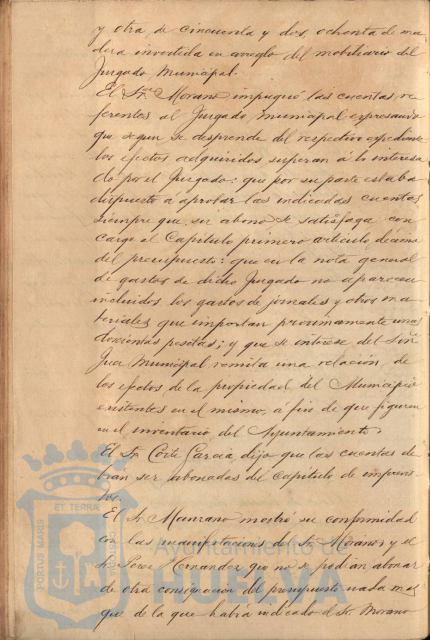 y otra de cincuenta y dos, ochenta de ma-
dera invertida en arreglo del mobiliario del
Juzgado Municipal.
El Sr. Morano impugnó las cuentas re-
ferentes al Juzgado Municipal expresando
que segun se desprende del respectivo expediente
los efectos adquiridos superan á lo interesa
do por el Juzgado: que por su parte estaba
dispuesto a aprobar las indicadas cuentas
siempre que su abono se satisfaga con
cargo al Capítulo primero artículo décimo
del presupuesto: que en la nota general
de gastos de dicho Juzgado no aparecen
incluidos los gastos de jornales y otros ma-
teriales que importan proximamente unas
doscientas pesetas; y que se interese del Señor
Juez Municipal remita una relación de
los efectos de la propiedad del Municipio
existentes en el mismo, a fin de que figuren
en el inventario del Ayuntamiento.
El Sr. Corte Garcia dijo que las cuentas de
bian ser abonadas del capitulo de imprevis-
tos.
El Sr. Manzano mostró su conformidad
con las manifestaciones del Sr. Morano y el
Sr. Perez Hernandez que no se podían abonar
de otra consignacion del presupuesto nada mas
que de la que habia indicado el Sr. Morano
PORTUS MARIS ET TERRAE
Ayuntamiento de
HUELVA